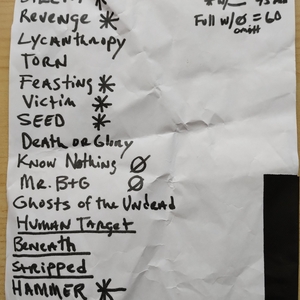 Revenge *
Lycanthropy
TORN
Feasting *
Victim *
SEED *
Death or Glory
Know Nothing Ø
Mr. B+G Ø
Ghosts of the Undead
Human Target
Beneath
Stripped
HAMMER *
Full w/Ø = 60
omitt